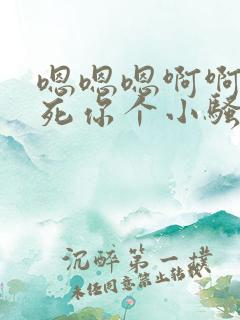 嗯嗯嗯啊啊
死你个小骚
沉醉第一楼
未经同意禁止转载